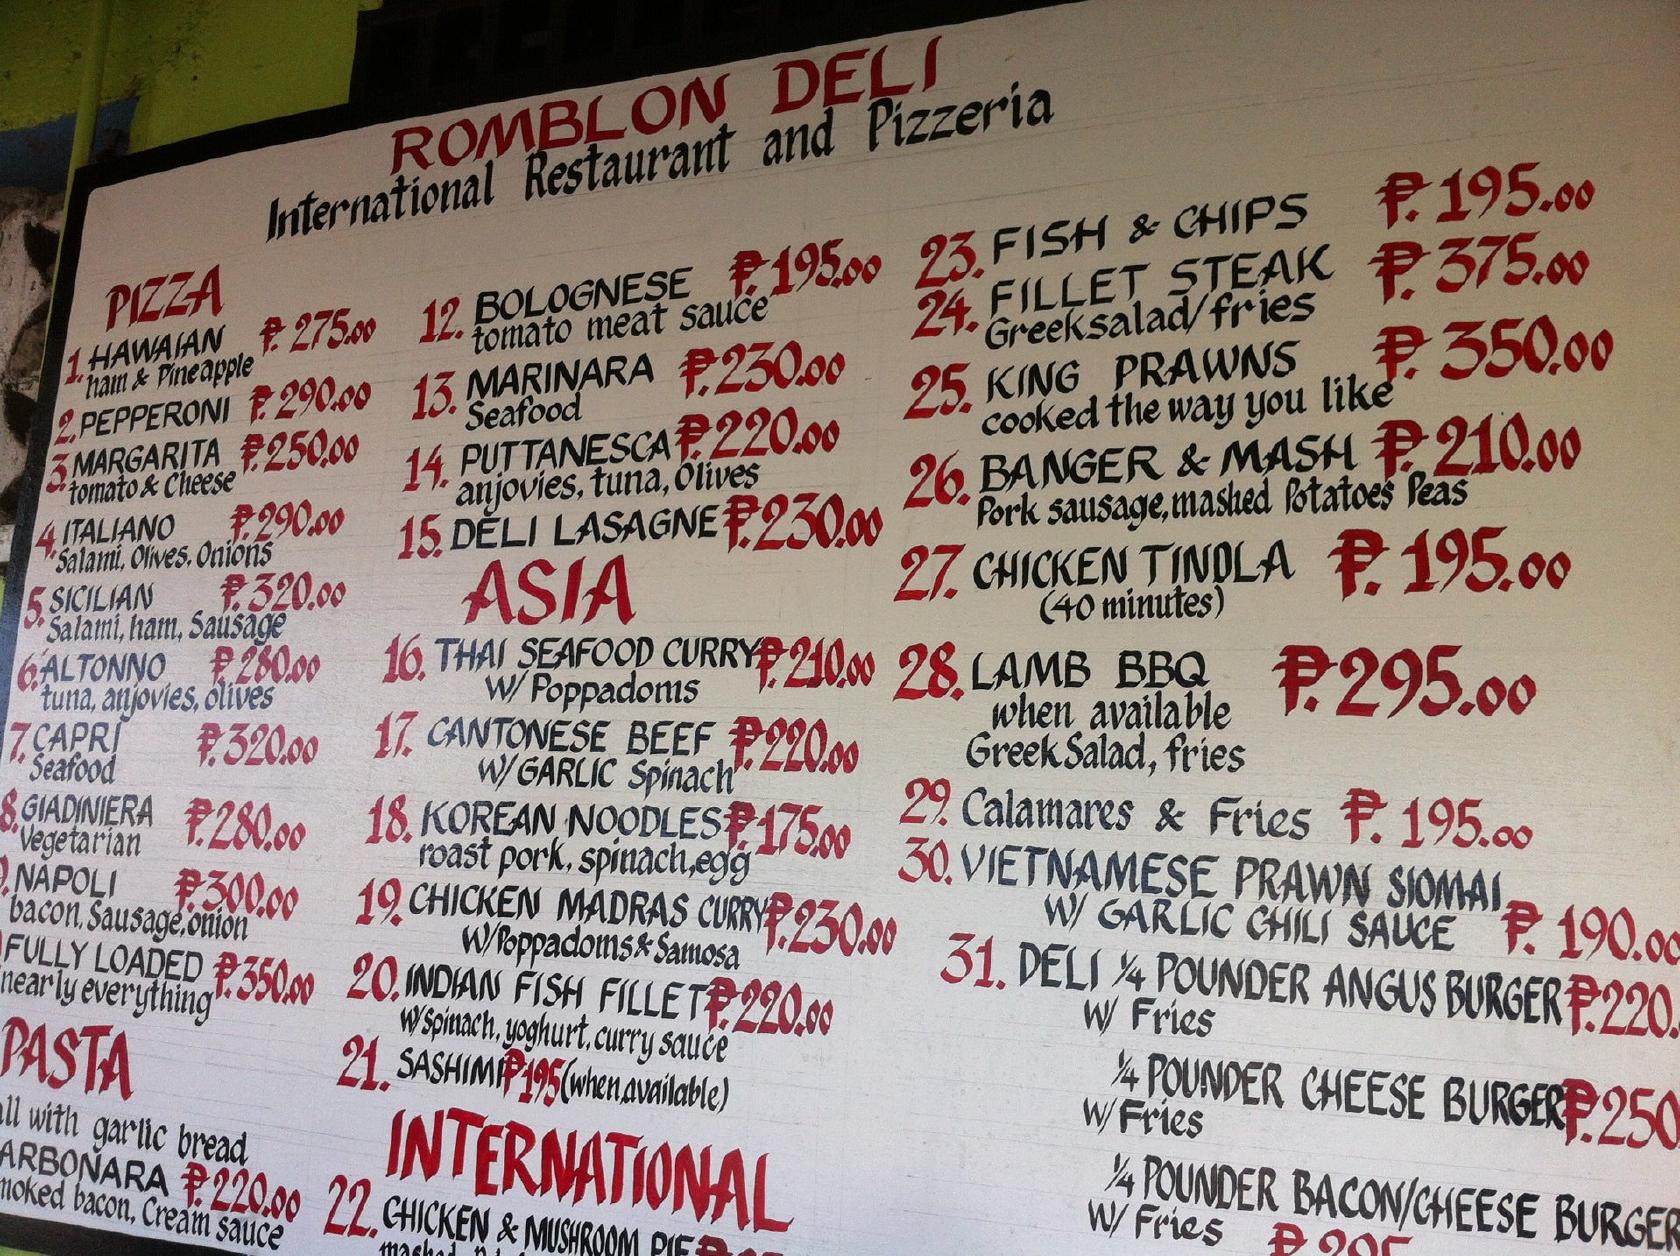 ROMBLON DELI
International Restaurant and Pizzeria
PIZZA
1. HAWAIAN ₱. 275.00
ham & Pineapple
2. PEPPERONI ₱. 290.00
3. MARGARITA ₱. 250.00
tomato & Cheese
4. ITALIANO ₱. 290.00
Salami, Olives, Onions
5. SICILIAN ₱. 320.00
Salami, ham, Sausage
6. ALTONNO ₱. 280.00
tuna, anjovies, olives
7. CAPRI ₱. 320.00
Seafood
8. GIADINIERA ₱. 280.00
Vegetarian
NAPOLI ₱. 300.00
bacon, Sausage, onion
FULLY LOADED ₱. 350.00
nearly everything
PASTA
all with garlic bread
ARBONARA ₱. 220.00
moked bacon, Cream sauce
12. BOLOGNESE ₱. 195.00
tomato meat sauce
13. MARINARA ₱. 230.00
Seafood
14. PUTTANESCA ₱. 220.00
anjovies, tuna, Olives
15. DELI LASAGNE ₱. 230.00
ASIA
16. THAI SEAFOOD CURRY ₱. 210.00
W/ Poppadoms
17. CANTONESE BEEF ₱. 220.00
W/ GARLIC Spinach
18. KOREAN NOODLES ₱. 175.00
roast pork, spinach, egg
19. CHICKEN MADRAS CURRY ₱. 230.00
W/ Poppadoms & Samosa
20. INDIAN FISH FILLET ₱. 220.00
W/ Spinach, yoghurt, curry sauce
21. SASHIMI ₱195 (when available)
INTERNATIONAL
22. CHICKEN & MUSHROOM PIE
23. FISH & CHIPS ₱. 195.00
24. FILLET STEAK ₱. 375.00
Greek salad/fries
25. KING PRAWNS ₱. 350.00
cooked the way you like
26. BANGER & MASH ₱. 210.00
Pork sausage, mashed Potatoes Peas
27. CHICKEN TINOLA ₱. 195.00
(40 minutes)
28. LAMB BBQ ₱. 295.00
when available
Greek Salad, fries
29. Calamares & Fries ₱. 195.00
30. VIETNAMESE PRAWN SIOMAI
W/ GARLIC CHILI SAUCE ₱. 190.00
31. DELI ¼ POUNDER ANGUS BURGER ₱. 220.
W/ Fries
¼ POUNDER CHEESE BURGER ₱. 250
W/ Fries
¼ POUNDER BACON/CHEESE BURGER
W/ Fries